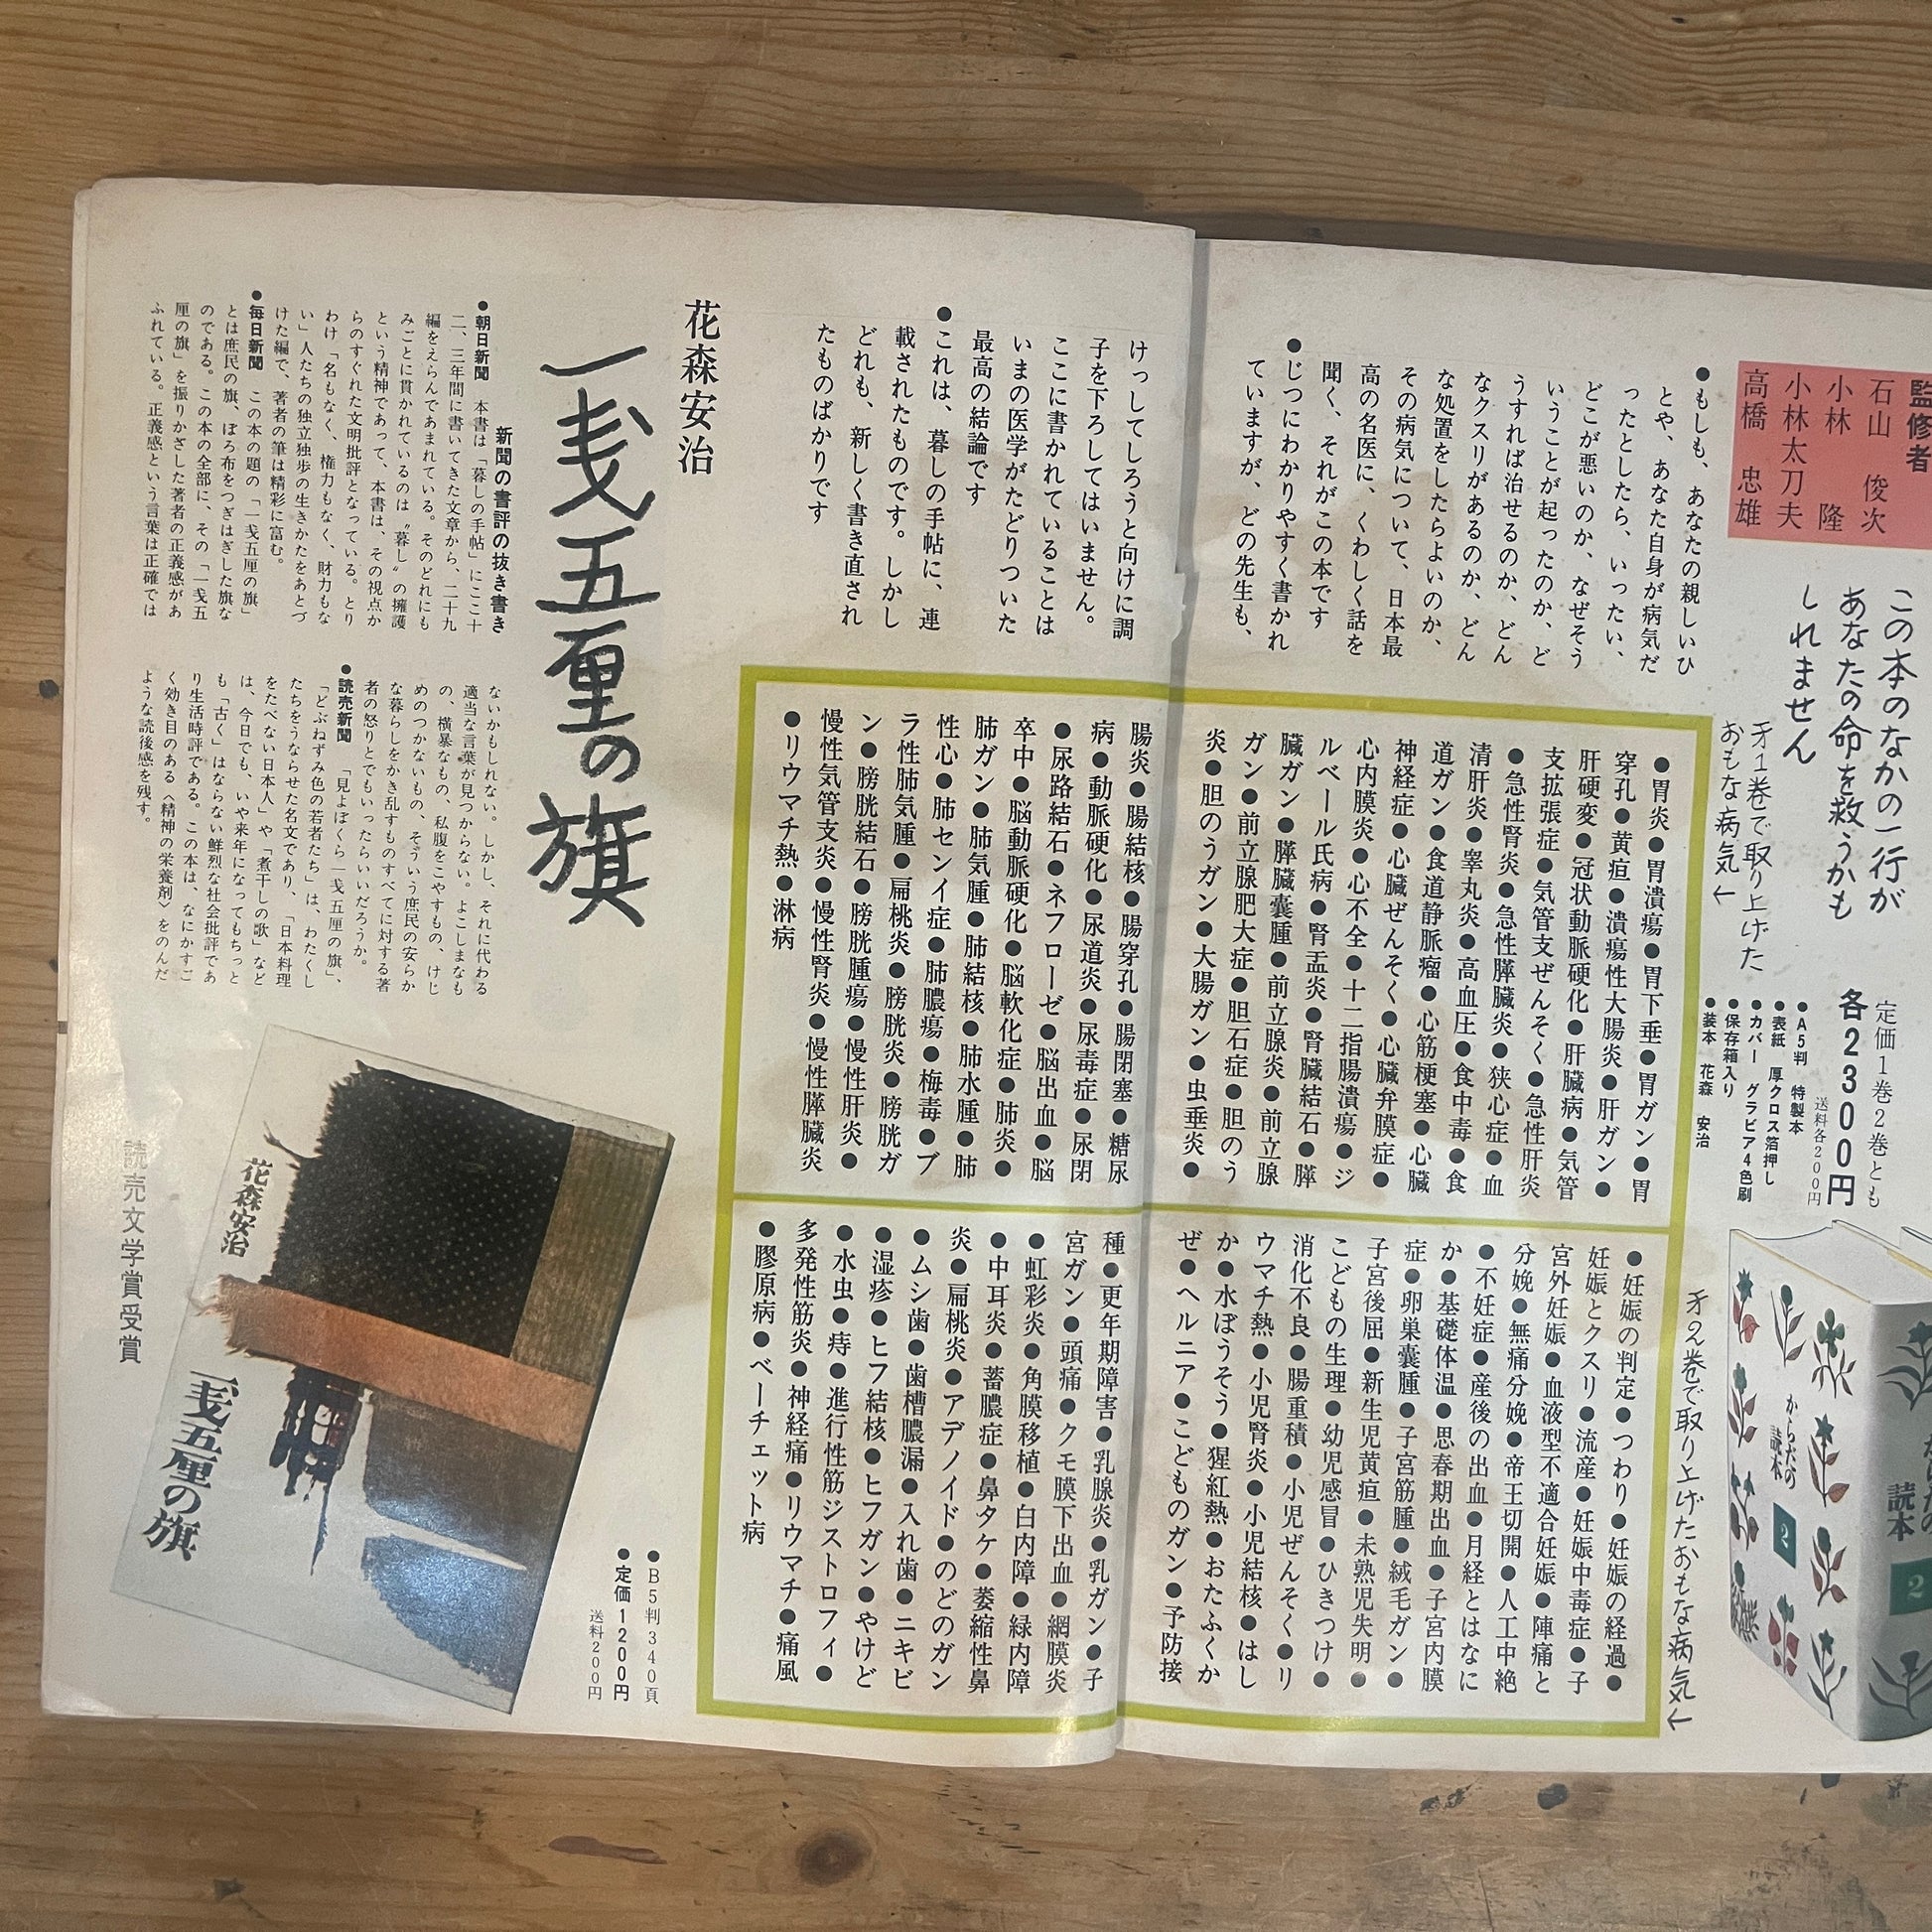 監修者
石山 俊次
小林 隆
小林太刀夫
高橋 忠雄
この本のなかの一行が
あなたの命を救うかも
しれません
定価1巻2巻とも
各2300円
送料各200円
●A5判 特製本
●表紙 厚クロス箔押し
●カバー グラビア4色刷
●保存箱入り
●装本 花森 安治
●もしも、あなたの親しいひ
とや、あなた自身が病気だ
ったとしたら、いったい、
どこが悪いのか、なぜそう
いうことが起ったのか、ど
うすれば治せるのか、どん
なクスリがあるのか、どん
な処置をしたらよいのか、
その病気について、日本最
高の名医に、くわしく話を
聞く、それがこの本です
●じつにわかりやすく書かれ
ていますが、どの先生も、
けっしてしろうと向けに調
子を下ろしてはいません。
ここに書かれていることは
いまの医学がたどりついた
最高の結論です
●これは、暮しの手帖に、連
載されたものです。しかし
どれも、新しく書き直され
たものばかりです
才1巻で取り上げた
おもな病気←
●胃炎●胃潰瘍●胃下垂●胃ガン●胃
穿孔●黄疸●潰瘍性大腸炎●肝ガン●
肝硬変●冠状動脈硬化●肝臓病●気管
支拡張症●気管支ぜんそく●急性肝炎
●急性腎炎●急性膵臓炎●狭心症●血
清肝炎●睾丸炎●高血圧●食中毒●食
道ガン●食道静脈瘤●心筋梗塞●心臓
神経症●心臓ぜんそく●心臓弁膜症●
心内膜炎●心不全●十二指腸潰瘍●ジ
ルベール氏病●腎盂炎●腎臓結石●膵
臓ガン●膵臓嚢腫●前立腺炎●前立腺
ガン●前立腺肥大症●胆石症●胆のう
炎●胆のうガン●大腸ガン●虫垂炎●
腸炎●腸結核●腸穿孔●腸閉塞●糖尿
病●動脈硬化●尿道炎●尿毒症●尿閉
●尿路結石●ネフローゼ●脳出血●脳
卒中●脳動脈硬化●脳軟化症●肺炎●
肺ガン●肺気腫●肺結核●肺水腫●肺
性心●肺センイ症●肺膿瘍●梅毒●ブ
ラ性肺気腫●扁桃炎●膀胱炎●膀胱ガ
ン●膀胱結石●膀胱腫瘍●慢性肝炎●
慢性気管支炎●慢性腎炎●慢性膵臓炎
●リウマチ熱●淋病
才2巻で取り上げたおもな病気←
●妊娠の判定●つわり●妊娠の経過●
妊娠とクスリ●流産●妊娠中毒症●子
宮外妊娠●血液型不適合妊娠●陣痛と
分娩●無痛分娩●帝王切開●人工中絶
●不妊症●産後の出血●月経とはなに
か●基礎体温●思春期出血●子宮内膜
症●卵巣嚢腫●子宮筋腫●絨毛ガン●
子宮後屈●新生児黄疸●未熟児失明●
こどもの生理●幼児感冒●ひきつけ●
消化不良●腸重積●小児ぜんそく●リ
ウマチ熱●小児腎炎●小児結核●はし
か●水ぼうそう●猩紅熱●おたふくか
ぜ●ヘルニア●こどものガン●予防接
種●更年期障害●乳腺炎●乳ガン●子
宮ガン●頭痛●クモ膜下出血●網膜炎
●虹彩炎●角膜移植●白内障●緑内障
●中耳炎●蓄膿症●鼻タケ●萎縮性鼻
炎●扁桃炎●アデノイド●のどのガン
●ムシ歯●歯槽膿漏●入れ歯●ニキビ
●湿疹●ヒフ結核●ヒフガン●やけど
●水虫●痔●進行性筋ジストロフィ●
多発性筋炎●神経痛●リウマチ●痛風
●膠原病●ベーチェット病
からだの
読本
2
読本
2
花森安治
一戔五厘の旗
新聞の書評の抜き書き
●朝日新聞 本書は「暮しの手帖」にここ十
二、三年間に書いてきた文章から、二十九
編をえらんであまれている。そのどれにも
みごとに貫かれているのは〝暮し〟の擁護
という精神であって、本書は、その視点か
らのすぐれた文明批評となっている。とり
わけ「名もなく、権力もなく、財力もな
い」人たちの独立独歩の生きかたをあとづ
けた編で、著者の筆は精彩に富む。
●毎日新聞 この本の題の「一戔五厘の旗」
とは庶民の旗、ぼろ布をつぎはぎした旗な
のである。この本の全部に、その「一戔五
厘の旗」を振りかざした著者の正義感があ
ふれている。正義感という言葉は正確では
ないかもしれない。しかし、それに代わる
適当な言葉が見つからない。よこしまなも
の、横暴なもの、私腹をこやすもの、けじ
めのつかないもの、そういう庶民の安らか
な暮らしをかき乱すものすべてに対する著
者の怒りとでもいったらいいだろうか。
●読売新聞 「見よぼくら一戔五厘の旗」、
「どぶねずみ色の若者たち」は、わたくし
たちをうならせた名文であり、「日本料理
をたべない日本人」や「煮干しの歌」など
は、今日でも、いや来年になってもちっと
も「古く」はならない鮮烈な社会批評であ
り生活時評である。この本は、なにかすご
く効き目のある〈精神の栄養剤〉をのんだ
ような読後感を残す。
花森安治
一戔五厘の旗
読売文学賞受賞
●B5判340頁
●定価1200円
送料200円